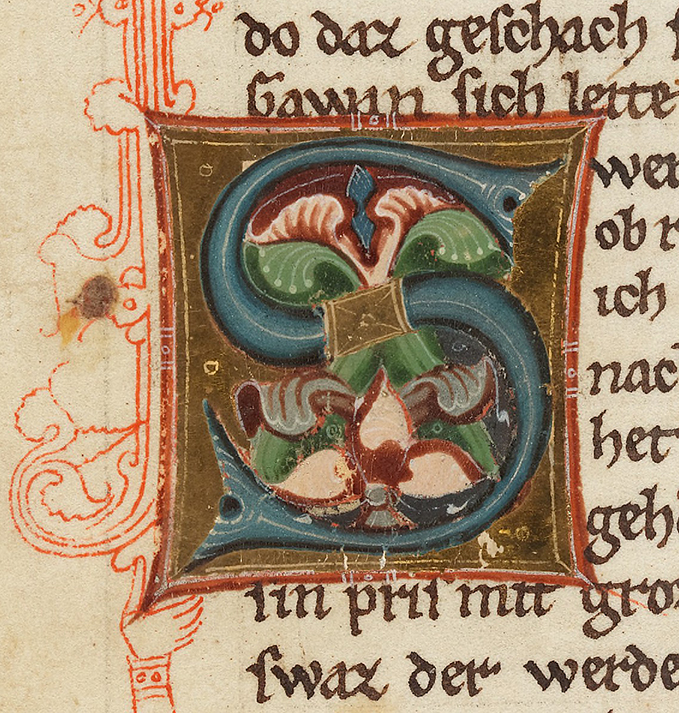 do daz geschach
Gawan sich leite
S wer
ob
ich
nac
her
geh
sin pris mit gro
swaz der werde